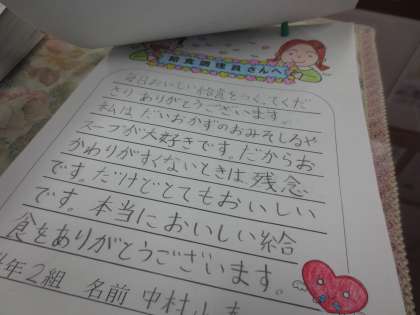 給食調理員さんへ
毎日おいしい給食をつくってくだ
さり ありがとうございます。
私は、だいおかずのおみそしるや
スープが大好きです。だからお
かわりがすくないときは、残念
です。だけどとてもおいしい
です。本当においしい給
食をありがとうございます。
年2組 名前 中村